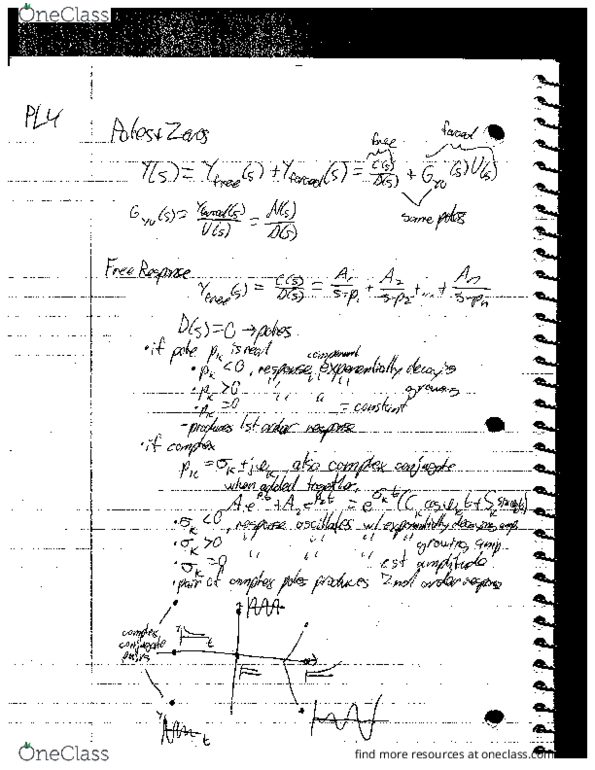 OneClass
PL4
Poles & Zeros
free
forced
Y(s) = Y_free(s) + Y_forced(s) = C(s)/D(s) + G_YU(s)U(s)
same poles
G_YU(s) = Y_forced(s)/U(s) = N(s)/D(s)
Free Response
Y_free(s) = C(s)/D(s) = A_1/s-p_1 + A_2/s-p_2 + ... + A_n/s-p_n
D(s)=0 → poles
• if pole p_k is real
component
• p_k < 0, response exponentially decaying
• p_k > 0 " " " growing
• p_k = 0 " " = constant
- produces 1st order response
• if complex
p_k = σ_k + jω_k, also complex conjugate
when added together,
A_1 e^{p_1 t} + A_2 e^{p_2 t} = e^{σ_k t} (C_k cos ω_k t + S_k sin ω_k t)
• σ_k < 0, response oscillates w/ exponentially decaying amp.
• σ_k > 0 " " " " growing amp.
• σ_k = 0 " " cst amplitude
• pair of complex poles produces 2nd order response
complex
conjugate
pairs
Y
t
Y
t
OneClass
find more resources at oneclass.com